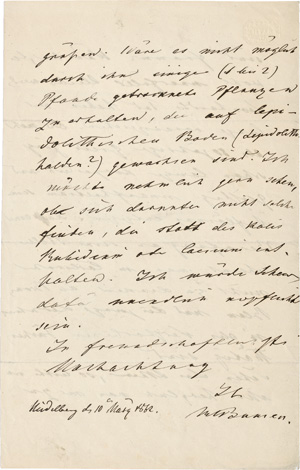 grüßen. Wäre es nicht möglich
durch ihn einige (1 bis 2)
Pfund getrocknete Pflanzen
zu erhalten, die auf lepi-
dolithischem Boden (Lepidolith
halden?) gewachsen sind. Ich
möchte nehmlich gern sehen
ob sich darunter nicht solche
finden, die statt des Kalis
Rubidium oder Caesium ent-
halten. Ich würde Ihnen
dafür unendlich verpflichtet
sein.
In freundschaftlichster
Hochachtung
Ihr
RWBunsen.
Heidelberg d. 10 März 1862.